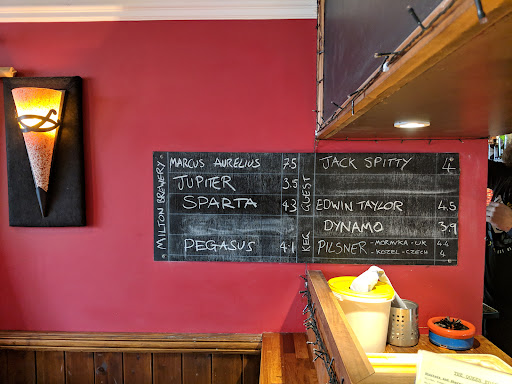 MILTON BREWERY
MARCUS AURELIUS 7.5
JUPITER 3.5
SPARTA 4.3
PEGASUS 4.1
GUEST
JACK SPITTY 4
EDWIN TAYLOR 4.5
DYNAMO 3.9
KEG
PILSNER - MORAVKA - UK 4.4
- KOZEL - CZECH 4